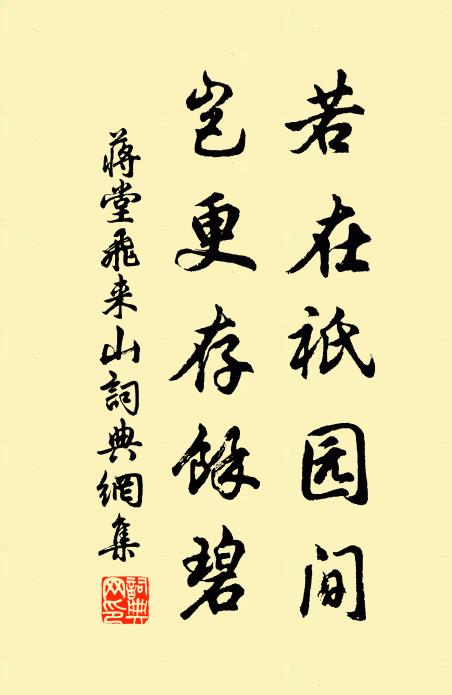 若在祇园间
岂更存馀碧
蒋堂飛来山詞典網集
詞典网印